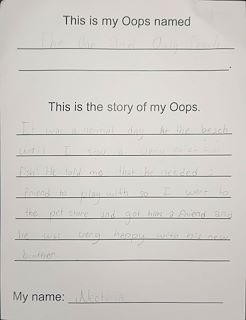 This is my Oops named
The One
This is the story of my Oops.
It was a normal day at the beach
until I saw a very
fish! He told me that he needed a
friend to play with so I went to
the pet store and got him a friend and
he was very happy with his new
brother.
My name: